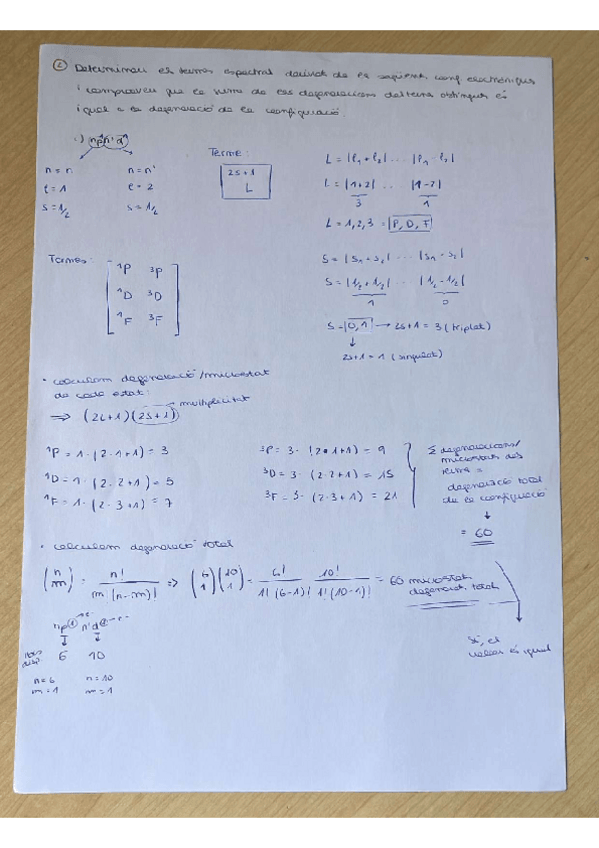 ② Determinau els termes espectral derivat de la següent conf electrònique
i comproveu que la suma de les degeneracions dels termes obtingus és
igual a la degeneració de la configuració.
i) np¹n'd¹
n = n
l = 1
s = 1/2
n = n'
l = 2
s = 1/2
Terme:
2S+1
L
L = |l₁+l₂| ... |l₁-l₂|
L = |1+2| ... |1-2|
3 1
L = 1,2,3 = P, D, F
S = |s₁+s₂| ... |s₁-s₂|
S = |1/2+1/2| ... |1/2-1/2|
1 0
S = 0,1 → 2s+1 = 3 (triplet)
↓
2s+1 = 1 (singulet)
Termes:
¹P ³P
¹D ³D
¹F ³F
• calculam degeneració/microestat
de cada estat:
⇒ (2L+1)(2S+1) → multiplicitat
¹P = 1·(2·1+1) = 3
¹D = 1·(2·2+1) = 5
¹F = 1·(2·3+1) = 7
³P = 3·(2·1+1) = 9
³D = 3·(2·2+1) = 15
³F = 3·(2·3+1) = 21
Σ degeneracions/
microestats dels
terms =
degeneració total
de la configuració
↓
= 60
• calculam degeneració total
(n m) = n! / m!(n-m)! ⇒ (6 1)(10 1) = 6! / 1!(6-1)! 10! / 1!(10-1)! = 60 microestat
degenerat. total
np¹ n'd¹
↓ ↓
6 10
n=6 n=10
m=1 m=1
Sí, el
valor és igual